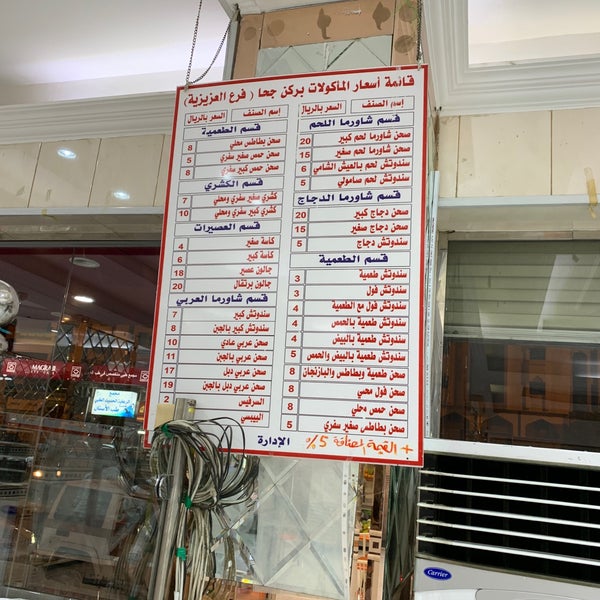 قائمة أسعار المأكولات بركن جحا ( فرع العزيزية)
إسم الصنف السعر بالريال
قسم شاورما اللحم
صحن شاورما لحم كبير 20
صحن شاورما لحم صغير 15
سندوتش لحم بالعيش الشامي 6
سندوتش لحم صامولي 5
قسم شاورما الدجاج
صحن دجاج كبير 20
صحن دجاج صغير 15
سندوتش دجاج 5
قسم الطعمية
سندوتش طعمية 3
سندوتش فول 3
سندوتش فول مع الطعمية 4
سندوتش طعمية بالحمص 4
سندوتش طعمية بالبيض 4
سندوتش طعمية بالبيض والحمص 5
صحن طعمية وبطاطس والباذنجان 8
صحن فول محمي 8
صحن حمص محلي 5
صحن بطاطس صغير سفري 5
اسم الصنف السعر بالريال
قسم الطعمية
صحن بطاطس محلي 8
صحن حمص صغير سفري 5
صحن حمص كبير سفري 8
قسم الكشري
كشري صغير سفري ومحلي 7
كشري كبير سفري ومحلي 10
قسم العصيرات
كاسة صغير 4
كاسة كبير 6
جالون عصير 18
جالون برتقال 20
قسم شاورما العربي
سندوتش كبير 7
سندوتش كبير بالجبن 8
صحن عربي عادي 10
صحن عربي بالجبن 11
صحن عربي دبل 17
صحن عربي دبل بالجبن 19
السرفيس 2
البيبسي
الإدارة
+ القيمة المضافة 5%
Carrier